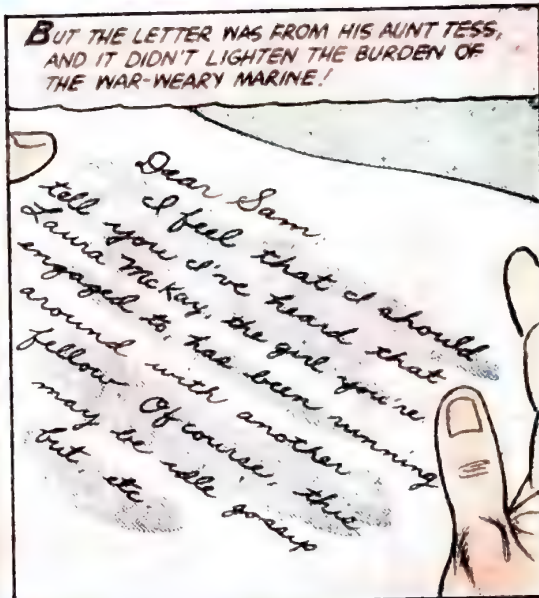 BUT THE LETTER WAS FROM HIS AUNT TESS,
AND IT DIDN'T LIGHTEN THE BURDEN OF
THE WAR-WEARY MARINE!
Dear Sam,
I feel that I should
tell you I've heard that
Laura McKay, the girl you're
engaged to, has been running
around with another
fellow. Of course, this
may be idle gossip
but, etc.